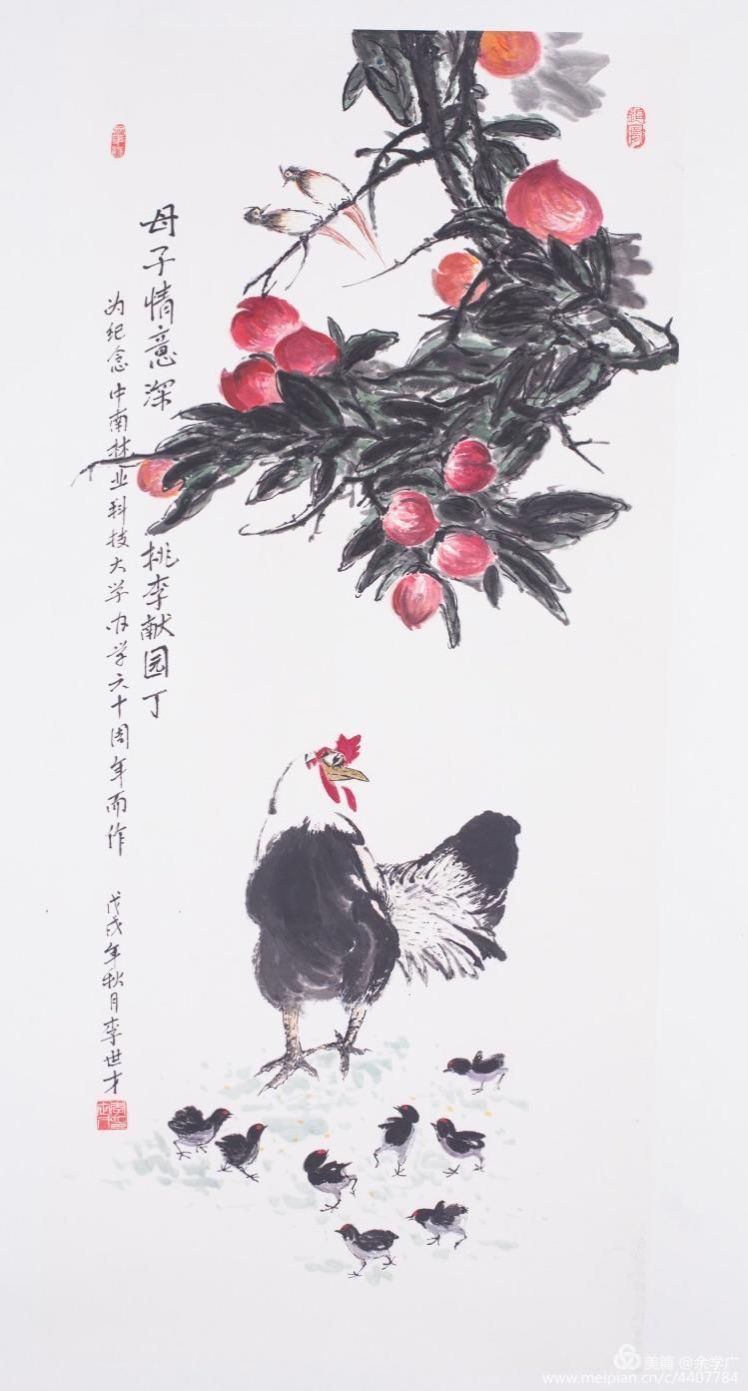 母子情意深 桃李献园丁
为纪念中南林业科技大学办学六十周年而作
戊戌年秋月李世才
美篇 @余学广
www.meipian.cn/c/4407784